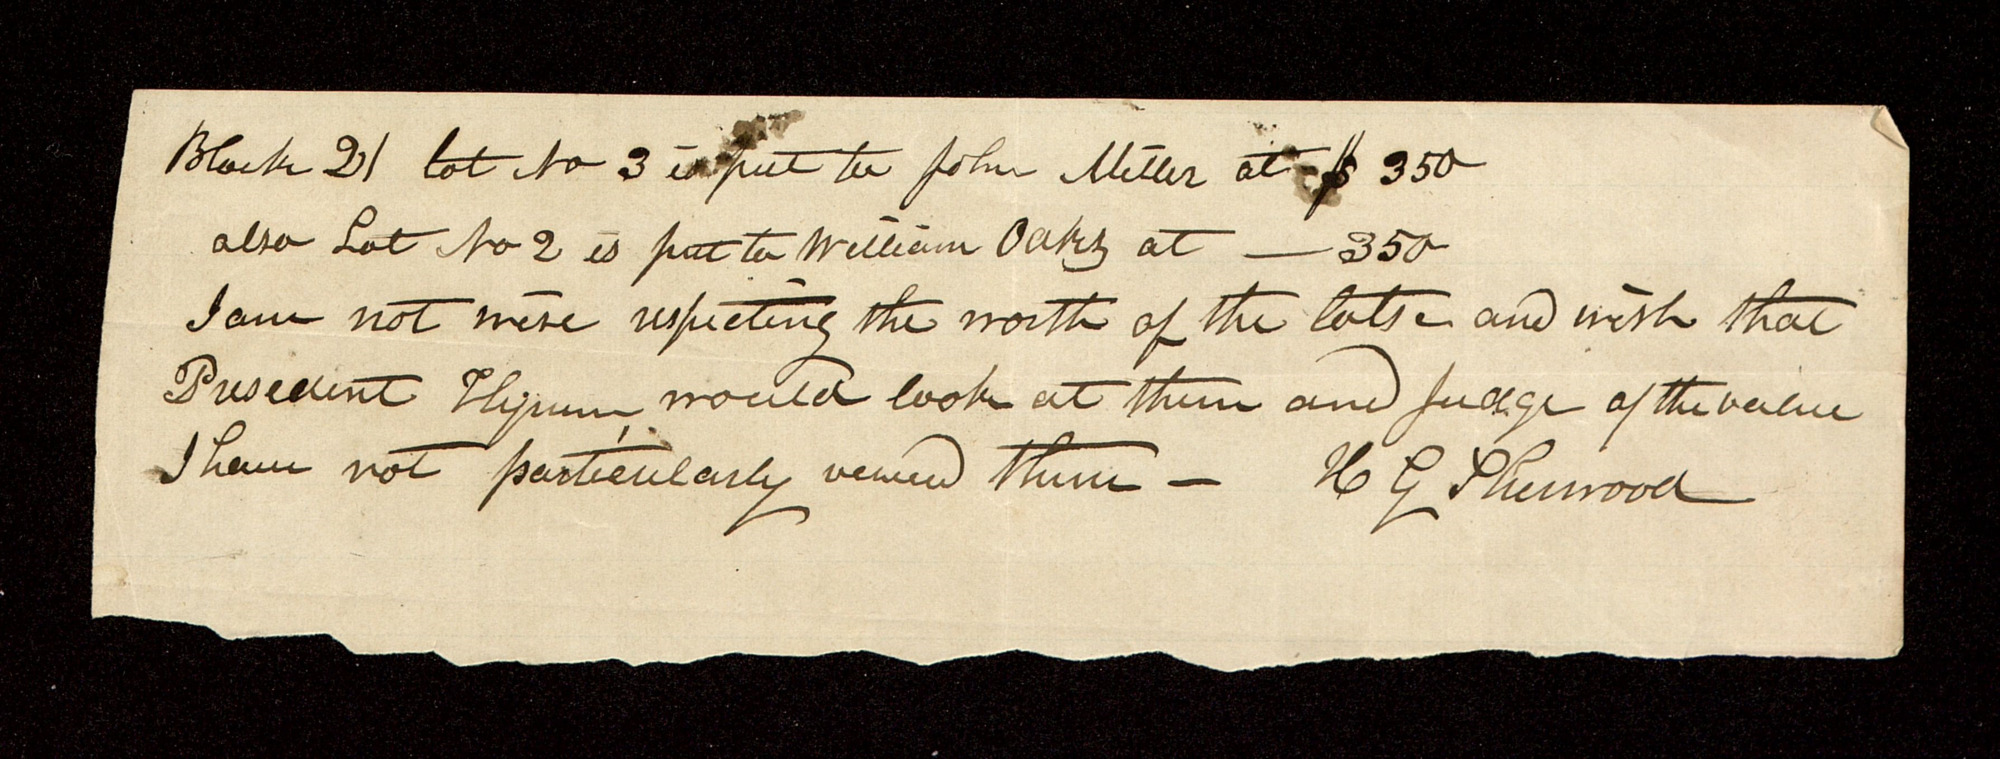 Block 21 lot No 3 is put to John Miller at $ 350
also Lot No 2 is put to William Oaks at — 350
I am not wise respecting the worth of the lots — and wish that
Presedent Hyrum, would look at them and judge of the value
I have not particularly vewed them — H G Sherwood